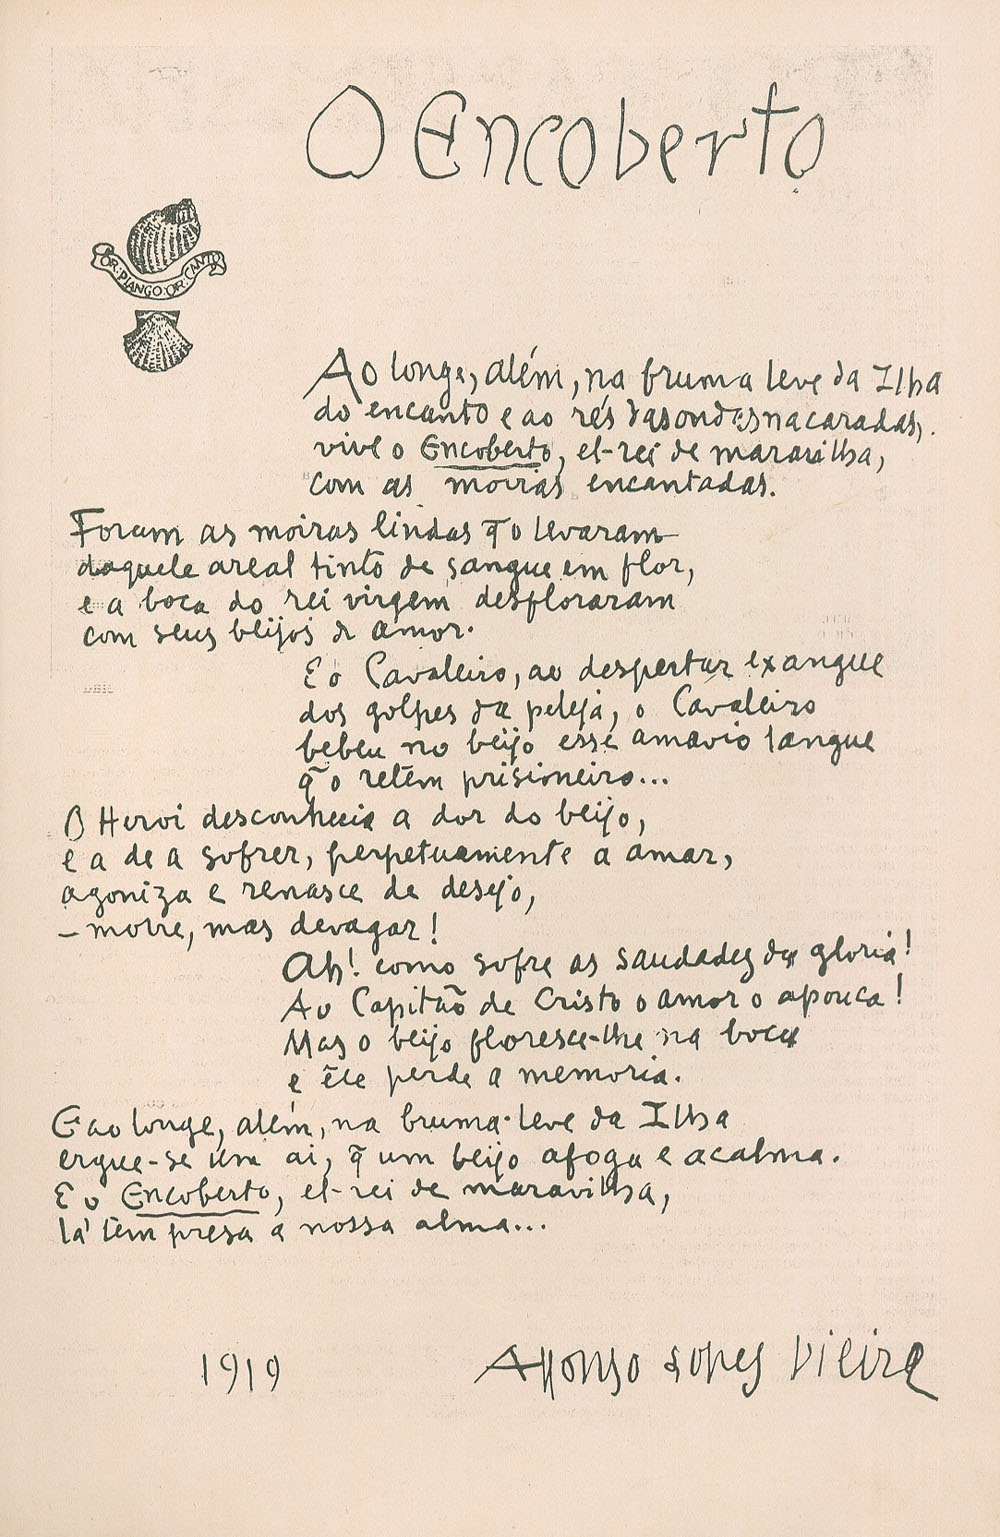 O Encoberto
OR·PIANGO·OR·CANTO
Ao longe, além, na bruma leve da Ilha
do encanto e ao rés das ondas nacaradas,
vive o Encoberto, el-rei de maravilha,
com as moiras encantadas.
Foram as moiras lindas q̃ o levaram
daquele areal tinto de sangue em flor,
e a boca do rei virgem desfloraram
com seus beijos de amor.
E o Cavaleiro, ao despertar exangue
dos golpes da peleja, o Cavaleiro
bebeu no beijo esse amavio langue
q̃ o retém prisioneiro...
O Heroi desconhecia a dor do beijo,
e a de a sofrer, perpetuamente a amar,
agoniza e renasce de desejo,
– morre, mas devagar!
Ah! como sofre as saudades da gloria!
Ao Capitão de Cristo o amor o apouca!
Mas o beijo floresce-lhe na boca
e êle perde a memoria.
E ao longe, além, na bruma leve da Ilha
ergue-se um ai, q̃ um beijo afoga e acalma.
E o Encoberto, el-rei de maravilha,
lá tem presa a nossa alma...
1919
Affonso Lopes Vieira